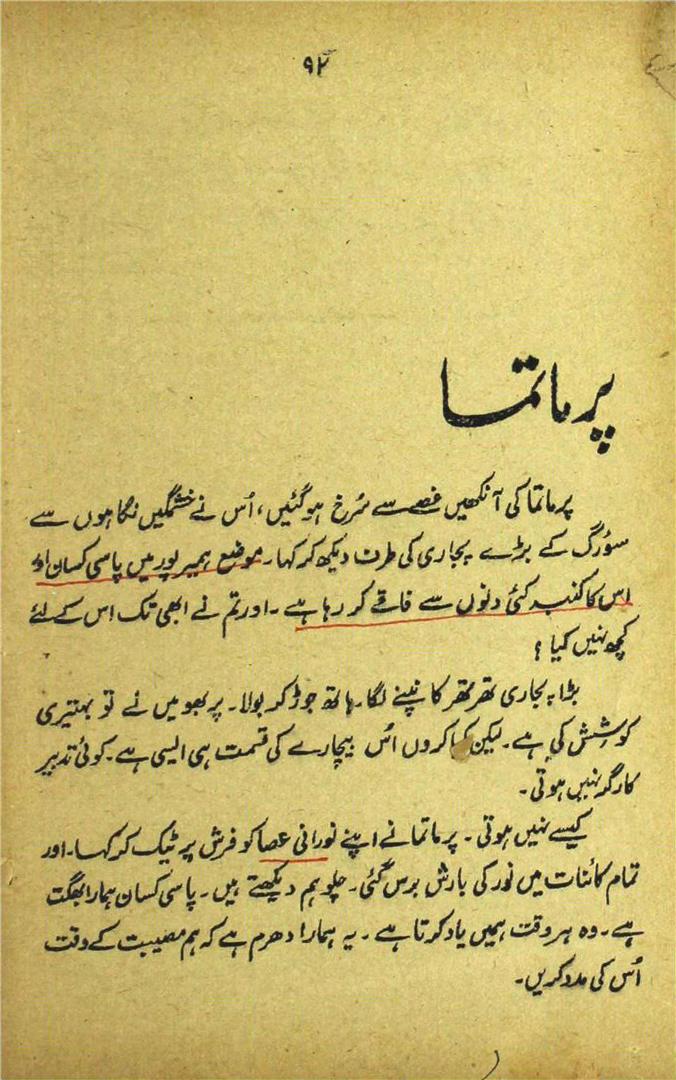 ۹۲
پرماتما
پرماتما کی آنکھیں غصے سے سُرخ ہوگئیں، اُس نے خشمگیں نگاہوں سے
سوَرگ کے بڑے پجاری کی طرف دیکھ کر کہا۔ موضع ہمیرپور میں پاسی کسان اور
اس کا کنبہ کئی دنوں سے فاقے کر رہا ہے۔ اور تم نے ابھی تک اس کے لئے
کچھ نہیں کیا؟
بڑا پجاری تھرتھر کانپنے لگا۔ ہاتھ جوڑ کر بولا۔ پربھو میں نے تو بہتیری
کوشِش کی ہے۔ لیکن کیا کروں اُس بیچارے کی قسمت ہی ایسی ہے۔ کوئی تدبیر
کارگر نہیں ہوتی۔
کیسے نہیں ہوتی۔ پرماتما نے اپنے نورانی عصا کو فرش پر ٹیک کر کہا۔ اور
تمام کائنات میں نور کی بارش برس گئی۔ چلو ہم دیکھتے ہیں۔ پاسی کسان ہمارا بھگت
ہے۔ وہ ہر وقت ہمیں یاد کرتا ہے۔ یہ ہمارا دھرم ہے کہ ہم مصیبت کے وقت
اُس کی مدد کریں۔